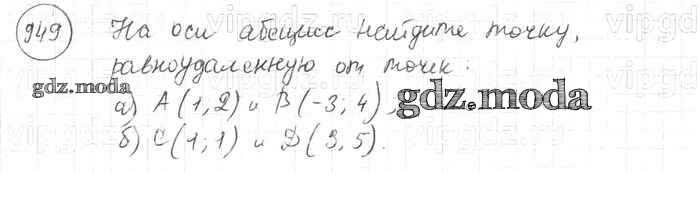 949 На оси абсцисс найдите точку,
равноудаленную от точек:
gdz.moda
а) A(1,2) и B(-3;4), gdz.moda
б) C(1;1) и D(3,5).